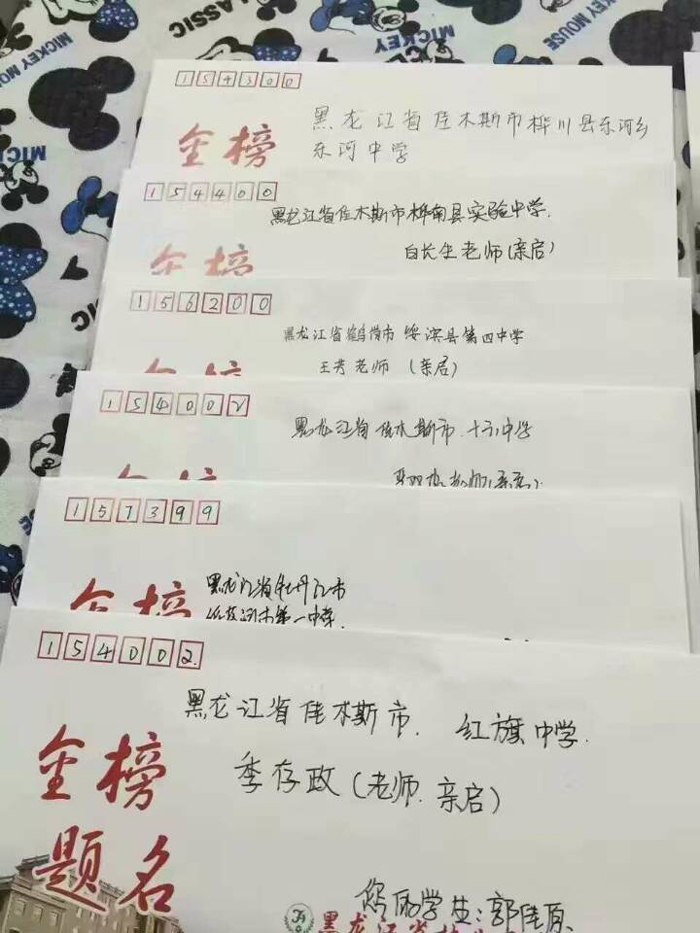 CLASSIC
MICKEY MOUSE
MICKEY MOUSE
154300
黑龙江省佳木斯市桦川县东河乡
东河中学
金榜
154400
黑龙江省佳木斯市桦南县实验中学.
白长生老师(亲启)
金榜
156200
黑龙江省鹤岗市 绥滨县第四中学
王芳老师 (亲启)
154002
黑龙江省佳木斯市.十六中学
老师(亲启)
157399
黑龙江省牡丹江市
第一中学.
金榜
154002.
黑龙江省佳木斯市. 红旗中学.
季存政(老师.亲启)
金榜
题名
您的学生:郭佳原.
黑龙江省